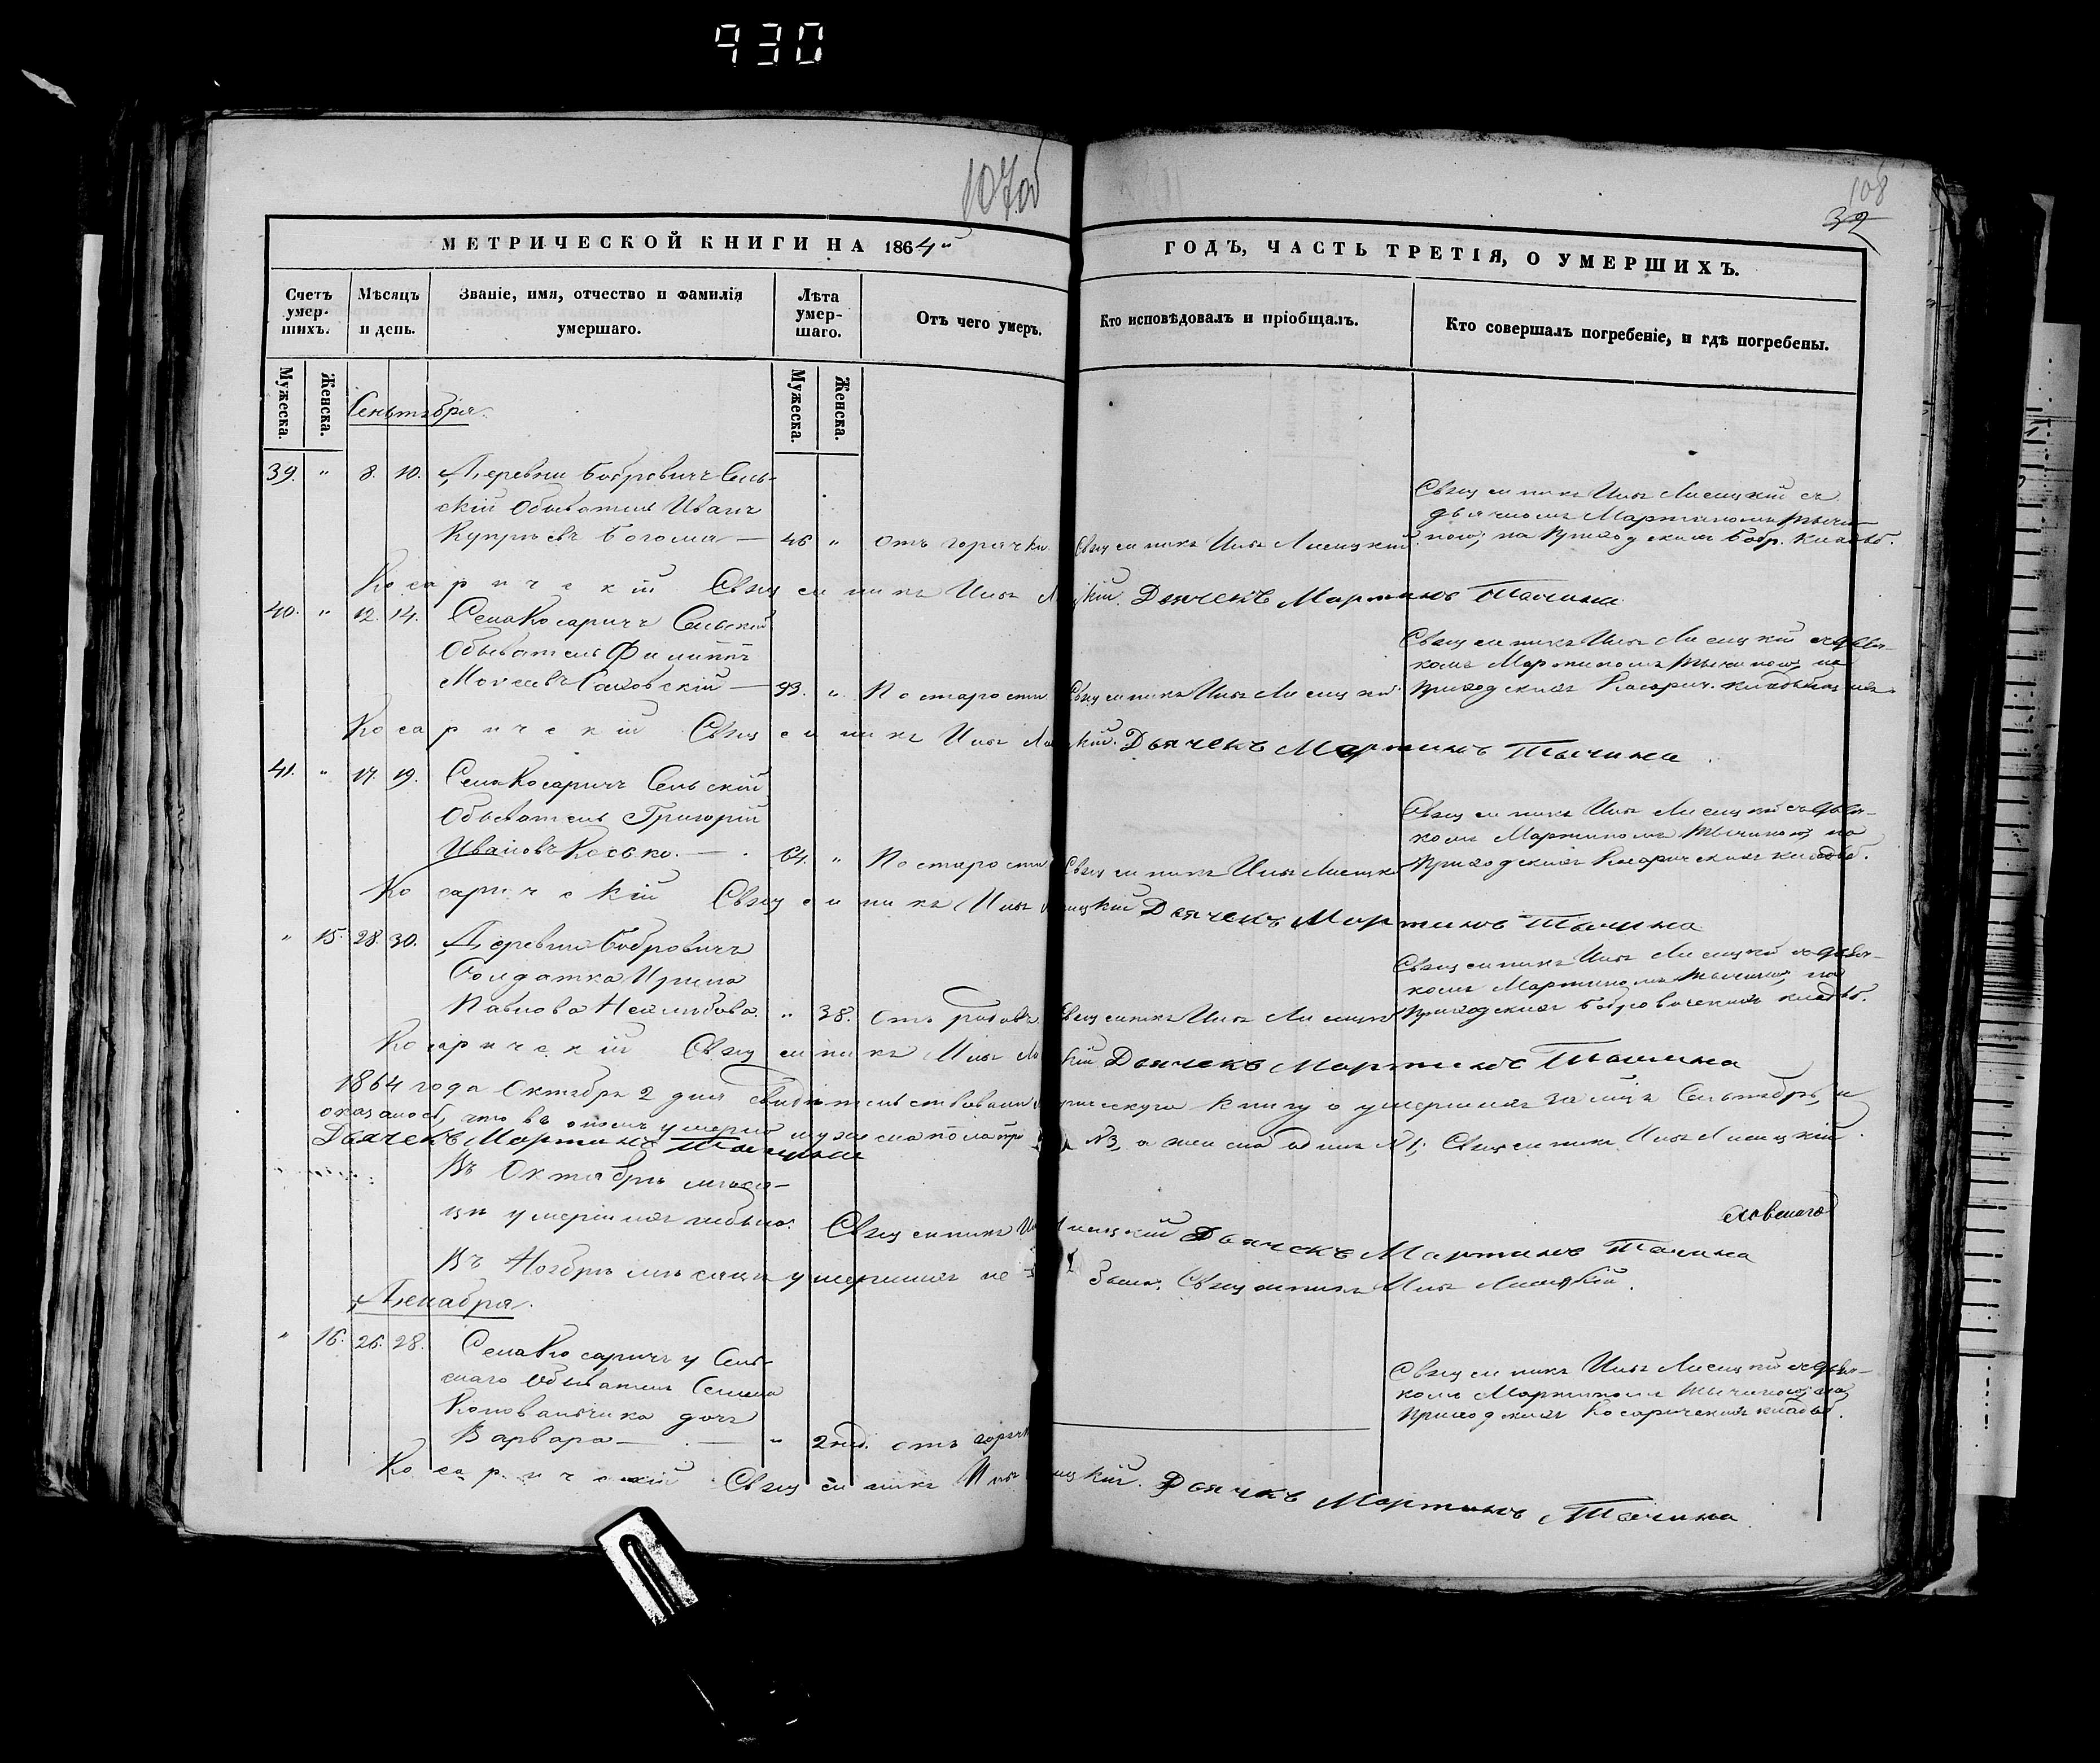 930
107об
108
32
МЕТРИЧЕСКОЙ КНИГИ НА 1864й
ГОДЪ, ЧАСТЬ ТРЕТІЯ, О УМЕРШИХЪ.
Счетъ умер-шихъ.
Мѣсяцъ и день.
Званіе, имя, отчество и фамилія умершаго.
Лѣта умер-шаго.
Отъ чего умеръ.
Кто исповѣдовалъ и пріобщалъ.
Кто совершалъ погребеніе, и гдѣ погребены.
Мужеска.
Женска.
Мужеска.
Женска.
Сентября.
39. " 8. 10. Деревни Бобровичъ Сель-
скій Обыватель Иванъ
Купріевъ Богома — 46 " Отъ горячки Священникъ Илья Лисицкій
Священникъ Илья Лисицкій съ
дьячкомъ Мартиномъ Тычи-
ною, на Приходскомъ Бобр. кладб.
Косаричскій Священникъ Илья Лисицкій. Дьячекъ Мартинъ Тычина
40. " 12. 14. Села Косаричъ Сельскій
Обыватель Филиппъ
Моисеевъ — 93. " По старости Священникъ Илья Лисицкій
Священникъ Илья Лисицкій съ дья-
комъ Мартиномъ Тычиною, на
приходскомъ Косарич. кладбищѣ
Косаричскій Священникъ Илья Лисицкій. Дьячекъ Мартинъ Тычина
41. " 17. 19. Села Косаричъ Сельскій
Обыватель Григорій
Ивановъ — 64. " По старости Священникъ Илья Лисицкій
Священникъ Илья Лисицкій съ дья-
комъ Мартиномъ Тычиною, на
приходскомъ Косаричскомъ кладб.
Косаричскій Священникъ Илья Лисицкій Дьячекъ Мартинъ Тычина
" 15. 28. 30. Деревни Бобровичъ
Солдатка Ирина
Павлова " 38. Отъ родовъ Священникъ Илья Лисицкій
Священникъ Илья Лисицкій съ дья-
комъ Мартиномъ Тычиною, на
приходскомъ Бобровичскомъ кладб.
Косаричскій Священникъ Илья Лисицкій Дьячекъ Мартинъ Тычина
1864 года Октября 2 дня свидѣтельствовали книгу о умершихъ за мцъ Сентябрь, и
оказалось, что въ ономъ умерло мужеска пола три №3, а женска одна №1; Священникъ Илья Лисицкій.
Дьячекъ Мартинъ Тычина
Въ Октябрѣ мѣся-
цѣ умершихъ небыло. Священникъ Илья Лисицкій Дьячекъ Мартинъ Тычина
Въ Ноябрѣ мѣсяцѣ умершихъ не было. Священникъ Илья Лисицкій.
Декабря.
" 16. 26. 28. Села Косаричъ у Сель-
скаго Обывателя Семена
дочь
Варвара — " 2 нед. отъ горячки
Священникъ Илья Лисицкій съ дья-
комъ Мартиномъ Тычиною, на
приходскомъ Косаричскомъ кладб.
Косаричскій Священникъ Илья Лисицкій. Дьячекъ Мартинъ Тычина